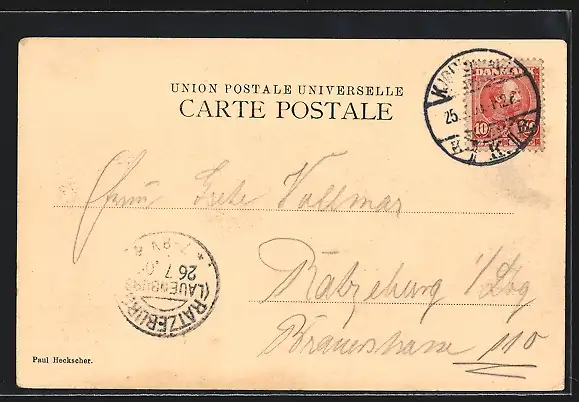 UNION POSTALE UNIVERSELLE
CARTE POSTALE
DANMARK
10
25.
K.
Grete Vollmar
Ratzeburg i/Lbg
Brauerstrasse 110
RATZEBURG
(LAUENBURG)
26.7.0
7-8V.
Paul Heckscher.